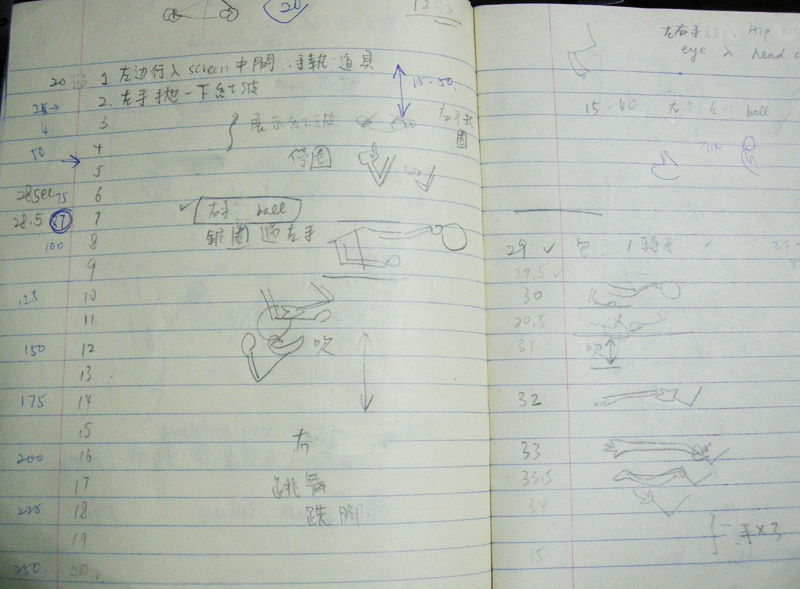 20
12
20 1 左边行入 screen 中間, 手執道具
15-50.
25 2. 左手抛一下紅波
4 3 展示紅波
圈
50 4 停圈
5
28sec 75 6
28.5 87 7 右手 ball
100 8 圈 過左手
9
125 10
11
150 12 吹
13
175 14
15 右
200 16
17 跳舞
225 18 跌脚
19
250. 20
左右手 Hip
eye 入 head
15-40 左 右 ball
29 1
29.5
30
30.5
31 吹
32
33
33.5
34
手x3
35